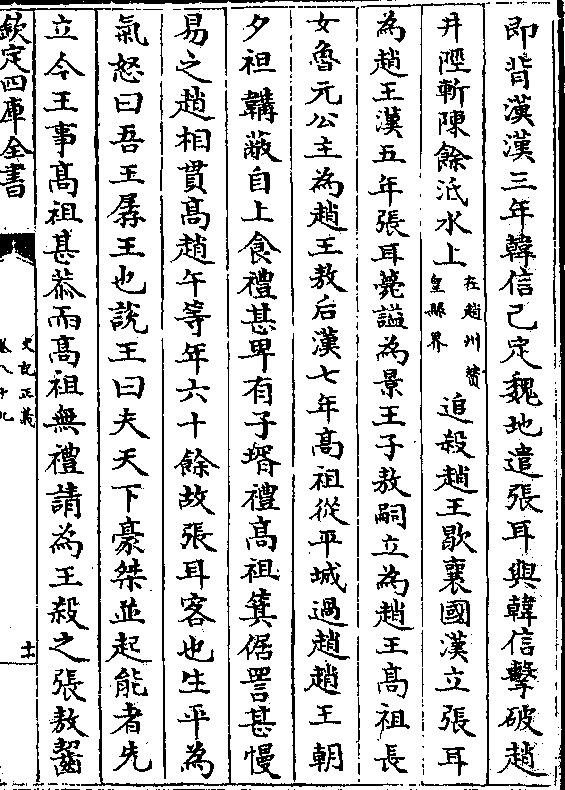 即背漢漢三年韓信已定魏地遣張耳與韓信擊破趙
井陘斬陳餘泜水上在趙州贊皇縣界追殺趙王歇襄國漢立張耳
為趙王漢五年張耳薨謚為景王子敖嗣立為趙王髙祖長
女魯元公主為趙王敖后漢七年髙祖從平城過趙趙王朝
夕袒韝蔽自上食禮甚卑有子壻禮髙祖箕倨詈甚慢
易之趙相貫髙趙午等年六十餘故張耳客也生平為
氣怒曰吾王孱王也説王曰夫天下豪桀並起能者先
立今王事髙祖甚恭而髙祖無禮請為王殺之張敖齧
欽定四庫全書
史記正義
卷八十九
十